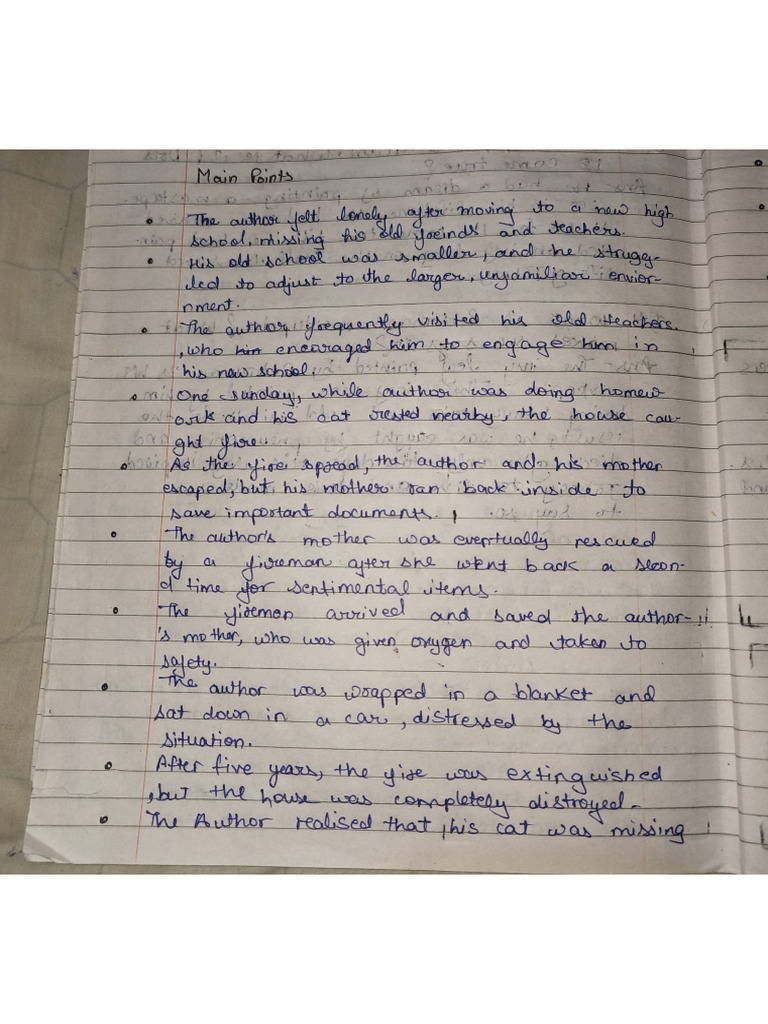 Main Points
• The author felt lonely after moving to a new high
school, missing his old freinds and teachers.
• His old school was smaller, and he strugg-
led to adjust to the larger, unfamiliar envior-
nment.
• The author frequently visited his old teachers.
, who him encouraged him to engage him in
his new school.
• One sunday, while author was doing homew
ork and his cat rested nearby, the house cau-
ght fire.
• As the fire spread, the author and his mother
escaped, but his mother ran back inside to
save important documents.
• The author's mother was eventually rescued
by a fireman after she went back a secon-
d time for sentimental items.
• The firemen arrived and saved the author-
's mother, who was given oxygen and taken to
safety.
• The author was wrapped in a blanket and
sat down in a car, distressed by the
situation.
• After five years, the fire was extinguished
, but the house was completely distroyed.
• The Author realised that, his cat was missing